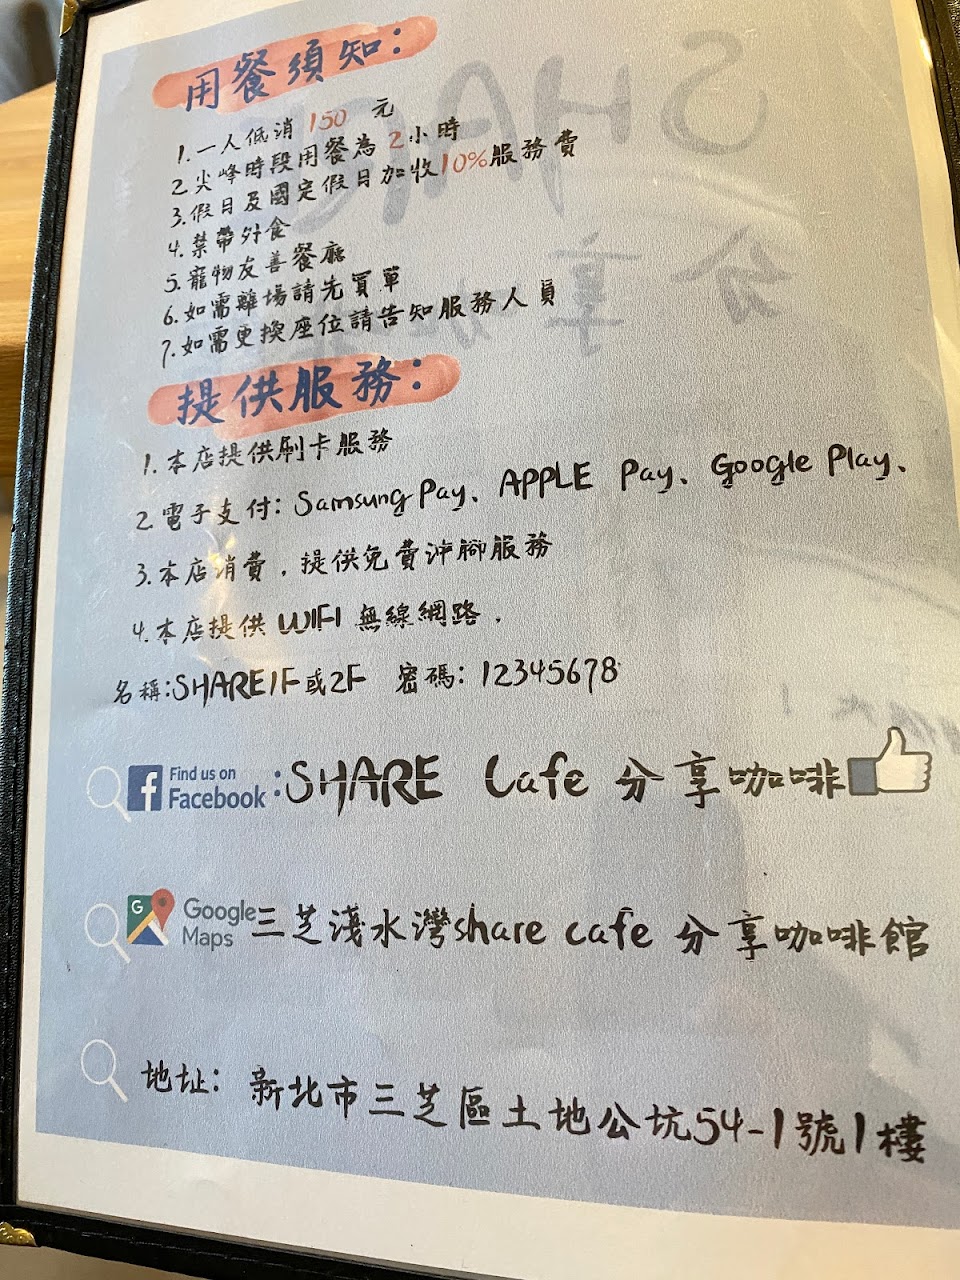 用餐須知:
1.一人低消150元
2.尖峰時段用餐為2小時
3.假日及國定假日加收10%服務費
4.禁帶外食
5.寵物友善餐廳
6.如需離場請先買單
7.如需更換座位請告知服務人員
提供服務:
1.本店提供刷卡服務
2.電子支付:Samsung Pay、APPLE Pay、Google Play、
3.本店消費,提供免費沖腳服務
4.本店提供WIFI無線網路.
名稱:SHARE1F或2F 密碼:12345678
Find us on Facebook:SHARE Cafe 分享咖啡
Google Maps三芝淺水灣share cafe 分享咖啡館
地址:新北市三芝區土地公坑54-1號1樓